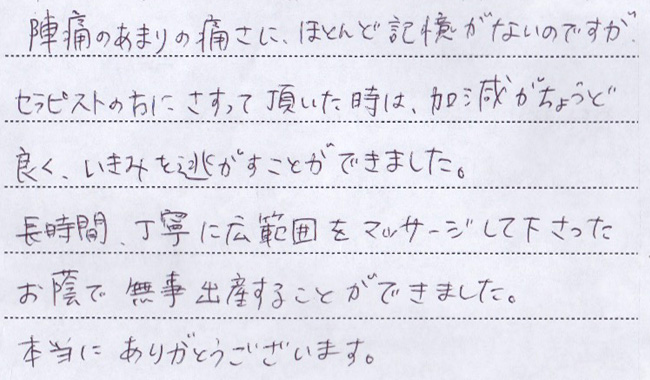 陣痛のあまりの痛さに、ほとんど記憶がないのですが、
セラピストの方にさすって頂いた時は、加減がちょうど
良く、いきみを逃がすことができました。
長時間、丁寧に広範囲をマッサージして下さった
お蔭で無事出産することができました。
本当にありがとうございます。